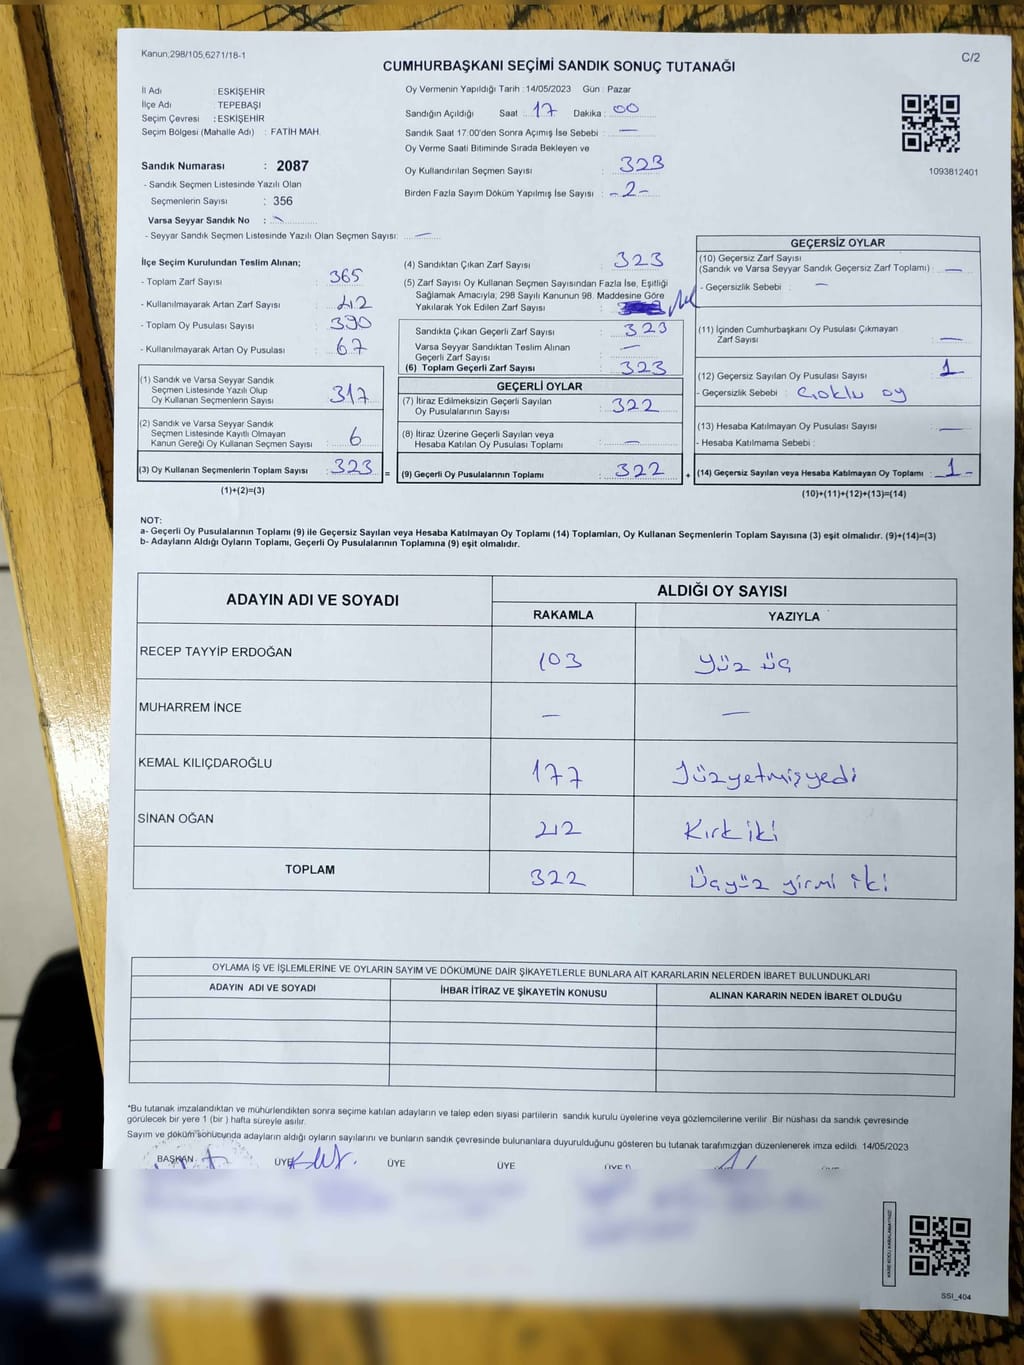 Kanun;298/105,6271/18-1
C/2
CUMHURBAŞKANI SEÇİMİ SANDIK SONUÇ TUTANAĞI
İl Adı : ESKİŞEHİR
İlçe Adı : TEPEBAŞI
Seçim Çevresi : ESKİŞEHİR
Seçim Bölgesi (Mahalle Adı) : FATİH MAH.
Sandık Numarası : 2087
- Sandık Seçmen Listesinde Yazılı Olan
Seçmenlerin Sayısı : 356
Varsa Seyyar Sandık No : -
- Seyyar Sandık Seçmen Listesinde Yazılı Olan Seçmen Sayısı: —
Oy Vermenin Yapıldığı Tarih : 14/05/2023 Gün : Pazar
Sandığın Açıldığı Saat : 17 Dakika : 00
Sandık Saat 17.00'den Sonra Açımış İse Sebebi : —
Oy Verme Saati Bitiminde Sırada Bekleyen ve
Oy Kullandırılan Seçmen Sayısı : 323
Birden Fazla Sayım Döküm Yapılmış İse Sayısı : -2-
1093812401
İlçe Seçim Kurulundan Teslim Alınan;
- Toplam Zarf Sayısı : 365
- Kullanılmayarak Artan Zarf Sayısı : 42
- Toplam Oy Pusulası Sayısı : 390
- Kullanılmayarak Artan Oy Pusulası : 67
(1) Sandık ve Varsa Seyyar Sandık
Seçmen Listesinde Yazılı Olup
Oy Kullanan Seçmenlerin Sayısı : 317
(2) Sandık ve Varsa Seyyar Sandık
Seçmen Listesinde Kayıtlı Olmayan
Kanun Gereği Oy Kullanan Seçmen Sayısı : 6
(3) Oy Kullanan Seçmenlerin Toplam Sayısı : 323 =
(1)+(2)=(3)
(4) Sandıktan Çıkan Zarf Sayısı : 323
(5) Zarf Sayısı Oy Kullanan Seçmen Sayısından Fazla İse, Eşitliği
Sağlamak Amacıyla, 298 Sayılı Kanunun 98. Maddesine Göre
Yakılarak Yok Edilen Zarf Sayısı :
Sandıkta Çıkan Geçerli Zarf Sayısı : 323
Varsa Seyyar Sandıktan Teslim Alınan
Geçerli Zarf Sayısı : —
(6) Toplam Geçerli Zarf Sayısı : 323
GEÇERLİ OYLAR
(7) İtiraz Edilmeksizin Geçerli Sayılan
Oy Pusulalarının Sayısı : 322
(8) İtiraz Üzerine Geçerli Sayılan veya
Hesaba Katılan Oy Pusulası Toplamı : —
(9) Geçerli Oy Pusulalarının Toplamı : 322 +
GEÇERSİZ OYLAR
(10) Geçersiz Zarf Sayısı
(Sandık ve Varsa Seyyar Sandık Geçersiz Zarf Toplamı) : —
- Geçersizlik Sebebi : —
(11) İçinden Cumhurbaşkanı Oy Pusulası Çıkmayan
Zarf Sayısı : —
(12) Geçersiz Sayılan Oy Pusulası Sayısı : 1
- Geçersizlik Sebebi : Çoklu oy
(13) Hesaba Katılmayan Oy Pusulası Sayısı : —
- Hesaba Katılmama Sebebi :
(14) Geçersiz Sayılan veya Hesaba Katılmayan Oy Toplamı : -1-
(10)+(11)+(12)+(13)=(14)
NOT:
a- Geçerli Oy Pusulalarının Toplamı (9) ile Geçersiz Sayılan veya Hesaba Katılmayan Oy Toplamı (14) Toplamları, Oy Kullanan Seçmenlerin Toplam Sayısına (3) eşit olmalıdır. (9)+(14)=(3)
b- Adayların Aldığı Oyların Toplamı, Geçerli Oy Pusulalarının Toplamına (9) eşit olmalıdır.
ADAYIN ADI VE SOYADI
ALDIĞI OY SAYISI
RAKAMLA YAZIYLA
RECEP TAYYİP ERDOĞAN 103 Yüz üç
MUHARREM İNCE — —
KEMAL KILIÇDAROĞLU 177 Yüzyetmişyedi
SİNAN OĞAN 42 Kırk iki
TOPLAM 322 Üçyüz yirmi iki
OYLAMA İŞ VE İŞLEMLERİNE VE OYLARIN SAYIM VE DÖKÜMÜNE DAİR ŞİKAYETLERLE BUNLARA AİT KARARLARIN NELERDEN İBARET BULUNDUKLARI
ADAYIN ADI VE SOYADI İHBAR İTİRAZ VE ŞİKAYETİN KONUSU ALINAN KARARIN NEDEN İBARET OLDUĞU
*Bu tutanak imzalandıktan ve mühürlendikten sonra seçime katılan adayların ve talep eden siyasi partilerin sandık kurulu üyelerine veya gözlemcilerine verilir. Bir nüshası da sandık çevresinde
görülecek bir yere 1 (bir ) hafta süreyle asılır.
Sayım ve döküm sonucunda adayların aldığı oyların sayılarını ve bunların sandık çevresinde bulunanlara duyurulduğunu gösteren bu tutanak tarafımızdan düzenlenerek imza edildi. 14/05/2023
BAŞKAN ÜYE ÜYE ÜYE ÜYE
SSI_404